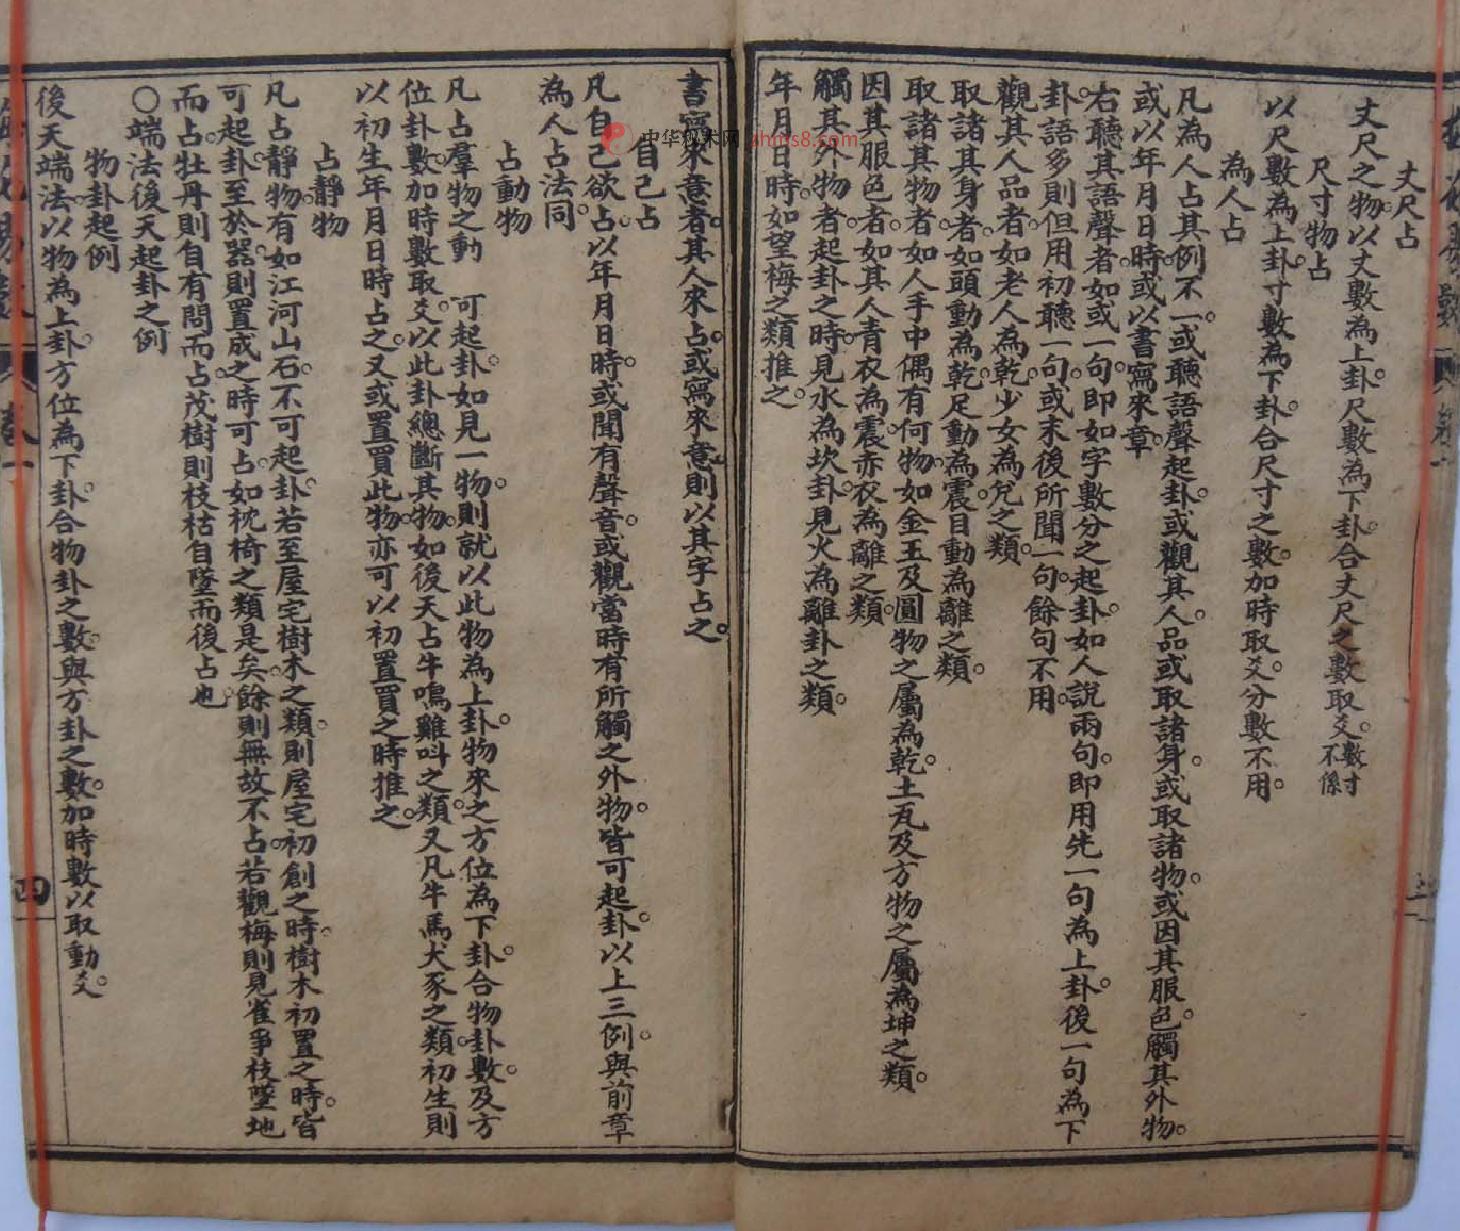 丈尺占
丈尺之物。以丈數為上卦。尺數為下卦。合丈尺之數取爻。數寸不係
尺寸物占
以尺數為上卦。寸數為下卦。合尺寸之數。加時取爻。分數不用。
為人占
凡為人占。其例不一。或聽語聲起卦。或觀其人品。或取諸身。或取諸物。或因其服色。觸其外物。
或以年月日時。或以書寫來章。
右聽其語聲者。如或一句。即如字數分之起卦。如人說兩句。即用先一句為上卦。後一句為下
卦。語多則但用初聽一句。或末後所聞一句。餘句不用。
觀其人品者。如老人為乾。少女為兌之類。
取諸其身者。如頭動為乾。足動為震。目動為離之類。
取諸其物者。如人手中偶有何物。如金玉及圓物之屬為乾。土瓦及方物之屬為坤之類。
因其服色者。如其人青衣為震。赤衣為離之類。
觸其外物者。起卦之時。見水為坎卦。見火為離卦之類。
年月日時。如望梅之類推之。
書寫來意者。其人來占。或寫來意。則以其字占之。
自己占
凡自己欲占。以年月日時。或聞有聲音。或觀當時有所觸之外物。皆可起卦。以上三例。與前章
為人占法同。
占動物
凡占羣物之動 可起卦。如見一物。則就以此物為上卦。物來之方位為下卦。合物卦數。及方
位卦數。加時數取爻。以此卦總斷其物。如後天占牛鳴雞叫之類。又凡牛馬犬豕之類。初生則
以初生年月日時占之。又或置買此物。亦可以初置買之時推之。
占靜物
凡占靜物。有如江河山石。不可起卦。若至屋宅樹木之類。則屋宅初創之時。樹木初置之時。皆
可起卦。至於器則置成之時可占。如枕椅之類是矣。餘則無故不占。若觀梅則見雀爭枝墜地
而占。牡丹則自有問而占。茂樹則枝枯自墜而後占也。
○端法後天起卦之例
物卦起例
後天端法。以物為上卦。方位為下卦。合物卦之數。與方卦之數。加時數以取動爻。
四